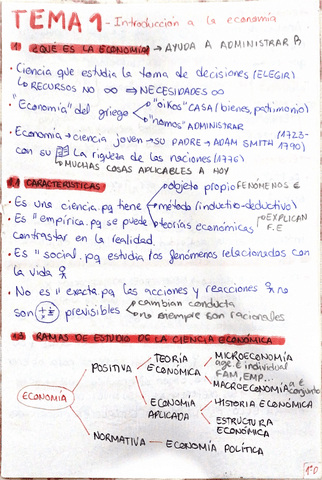 TEMA 1 - Introducción a la economía
1. ¿QUÉ ES LA ECONOMÍA? → AYUDA A ADMINISTRAR B
· Ciencia que estudia la toma de decisiones (ELEGIR)
↳ RECURSOS NO ∞ ⇒ NECESIDADES ∞
· "Economía" del griego "oikos" CASA (bienes, patrimonio)
"nomos" ADMINISTRAR
· Economía → ciencia joven → SU PADRE → ADAM SMITH (1723-1790)
con su La riqueza de las naciones (1776)
↳ MUCHAS COSAS APLICABLES A HOY
1.1 CARACTERÍSTICAS
objeto propio FENÓMENOS E
· Es una ciencia pq tiene método (inductio-deductivo)
teorías económicas → EXPLICAN F.E
· Es " empírica pq se puede
contrastar en la realidad.
· Es " social pq estudia los fenómenos relacionados con
la vida
· No es " exacta pq las acciones y reacciones no
son previsibles cambian conducta
no siempre son racionales
RAMAS DE ESTUDIO DE LA CIENCIA ECONÓMICA
ECONOMÍA
POSITIVA
TEORÍA ECONÓMICA
MICROECONOMÍA
age. e individual
FAM, EMP...
MACROECONOMÍA a.e conjunto
ECONOMÍA APLICADA
HISTORIA ECONÓMICA
ESTRUCTURA ECONÓMICA
NORMATIVA — ECONOMÍA POLÍTICA